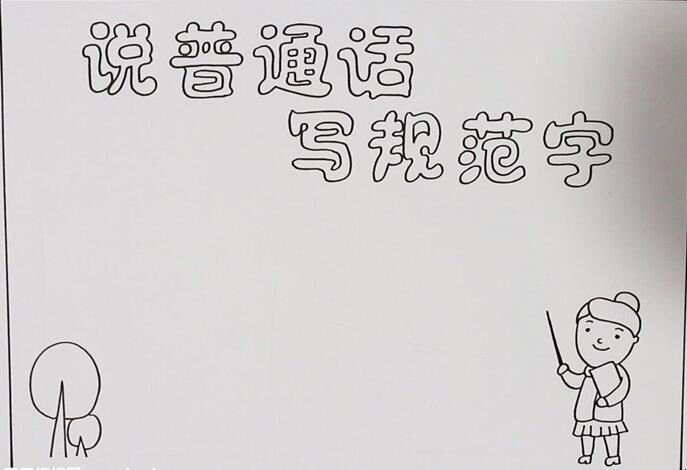 说普通话
写规范字